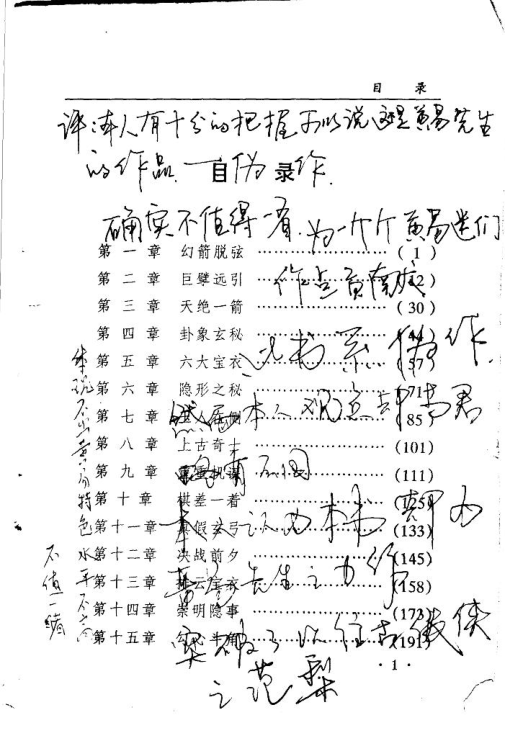 目 录
评:本人有十分的把握可以说这是黄易先生
的作品.
自 伪 录 作.
确实不值得一看.为一个个黄易迷们
第 一 章 幻箭脱弦 (1)
第 二 章 巨擘远引 2)
作点贡献
第 三 章 天绝一箭 (30)
第 四 章 卦象玄秘
此书系伪作.
第 五 章 六大宝衣 57)
第 六 章 隐形之秘 71)
第 七 章 (85)
本人观点与前君
第 八 章 上古奇士 (101)
第 九 章 (111)
有不同
第 十 章 棋差一着
第十一章 真假玄弓 (133)
本人认为本书
第十二章 决战前夕 (145)
第十三章 (158)
先生之力作
第十四章 崇明隐事 (173)
第十五章 (191)
突破了以往
侠
之范
·1·
体现不出黄易特色
水平不高
不值一睹